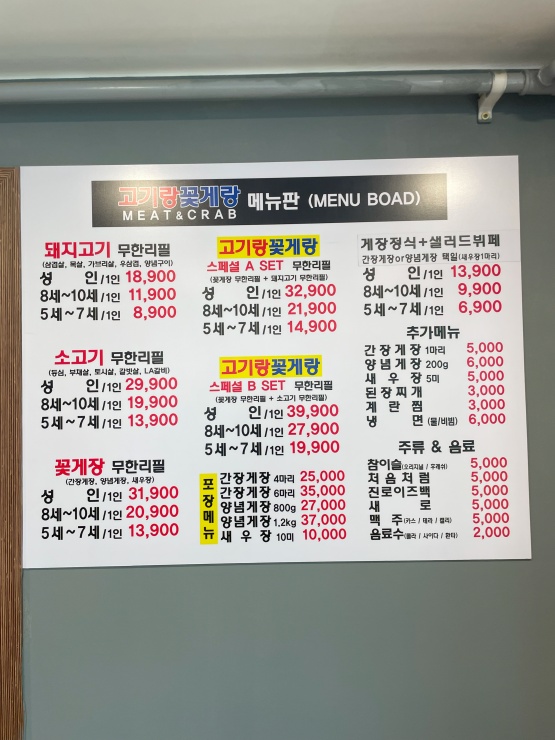 고기랑꽃게랑 메뉴판 (MENU BOAD)
MEAT&CRAB
돼지고기 무한리필
(삼겹살, 목살, 가브리살, 우삼겹, 양념구이)
성 인/1인 18,900
8세~10세/1인 11,900
5세~7세/1인 8,900
소고기 무한리필
(등심, 부채살, 토시살, 갈빗살, LA갈비)
성 인/1인 29,900
8세~10세/1인 19,900
5세~7세/1인 13,900
꽃게장 무한리필
(간장게장, 양념게장, 새우장)
성 인/1인 31,900
8세~10세/1인 20,900
5세~7세/1인 13,900
고기랑꽃게랑
스페셜 A SET 무한리필
(꽃게장 무한리필 + 돼지고기 무한리필)
성 인/1인 32,900
8세~10세/1인 21,900
5세~7세/1인 14,900
고기랑꽃게랑
스페셜 B SET 무한리필
(꽃게장 무한리필 + 소고기 무한리필)
성 인/1인 39,900
8세~10세/1인 27,900
5세~7세/1인 19,900
포장메뉴
간장게장 4마리 25,000
간장게장 6마리 35,000
양념게장 800g 27,000
양념게장 1,2kg 37,000
새우장 10미 10,000
게장정식+샐러드뷔페
간장게장or양념게장 택일(새우장1마리)
성 인/1인 13,900
8세~10세/1인 9,900
5세~7세/1인 6,900
추가메뉴
간장게장 1마리 5,000
양념게장 200g 6,000
새우장 5미 5,000
된장찌개 3,000
계란찜 3,000
냉면(물/비빔) 6,000
주류 & 음료
참이슬(오리지널 / 후레쉬) 5,000
처음처럼 5,000
진로이즈백 5,000
새로 5,000
맥주(카스 / 테라 / 켈리) 5,000
음료수(콜라 / 사이다 / 환타) 2,000